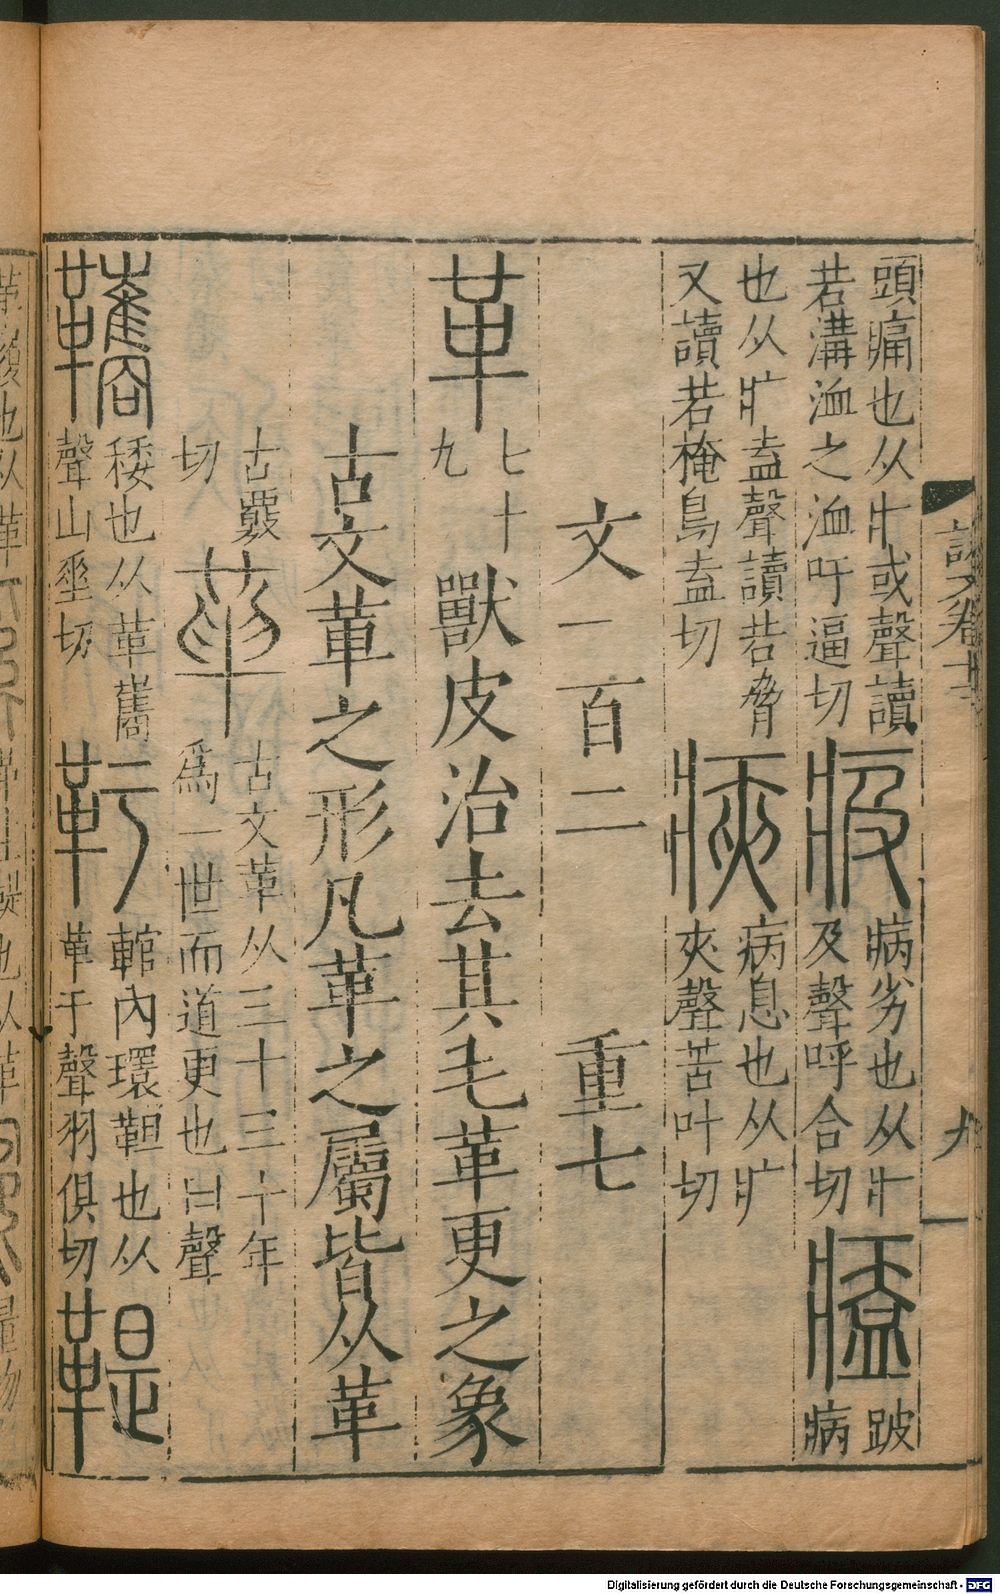 頭痛也从疒或聲讀
若溝洫之洫吁逼切
疲
病劣也从疒
及聲呼合切
𤸱
跛
病
也从疒盍聲讀若脅
又讀若掩烏盍切
㾜
病息也从疒
夾聲苦叶切
文一百二 重七
革
七十
九
獸皮治去其毛革更之象
古文革之形凡革之屬皆从革
古覈
切
古文革从三十三十年
爲一世而道更也𦥑聲
鞼
矮也从革巂
聲山垂切
靬
輨內環靼也从
革于聲羽俱切
鞮
說文卷十二
九
Digitalisierung gefördert durch die Deutsche Forschungsgemeinschaft - DFG